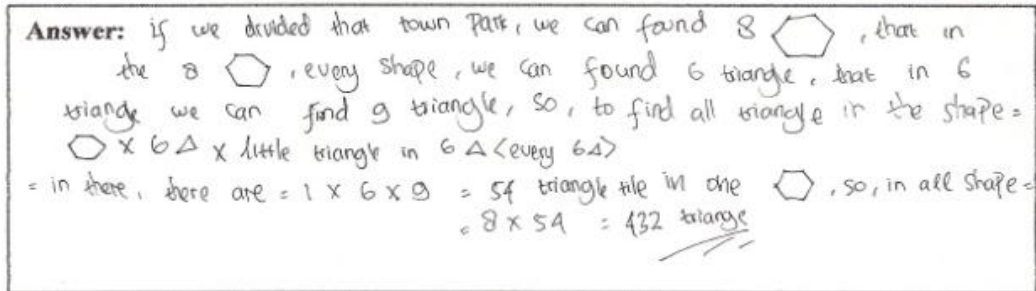 Answer: if we divided that town Park, we can found 8 ⬡, that in
the 8 ⬡, every shape, we can found 6 triangle, that in 6
triangle we can find 9 triangle, so, to find all triangle in the shape =
⬡ x 6 △ x little triangle in 6 △ <every 6△>
= in there, there are = 1 x 6 x 9 = 54 triangle tile in one ⬡, so, in all shape =
= 8 x 54 = 432 triange